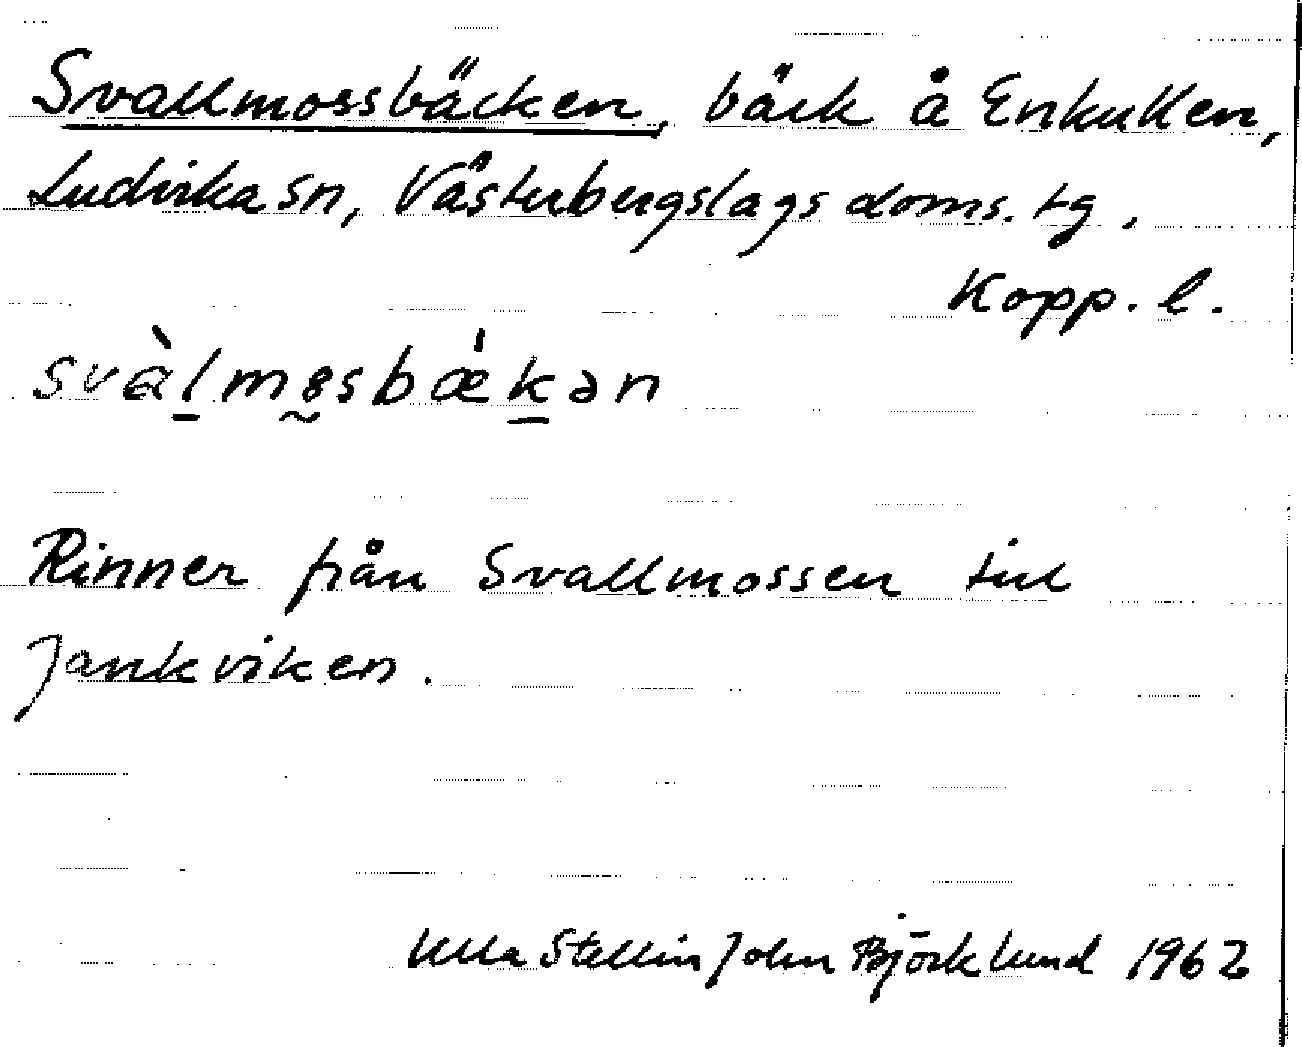 Svallmossbäcken, bäck å Enkullen,
Ludvika sn, Västerbergslags doms. tg.
Kopp. l.
svàl̠mo̰sbǽk̠ən
Rinner från Svallmossen till
Jankviken.
Ulla Stellin John Björklund 1962